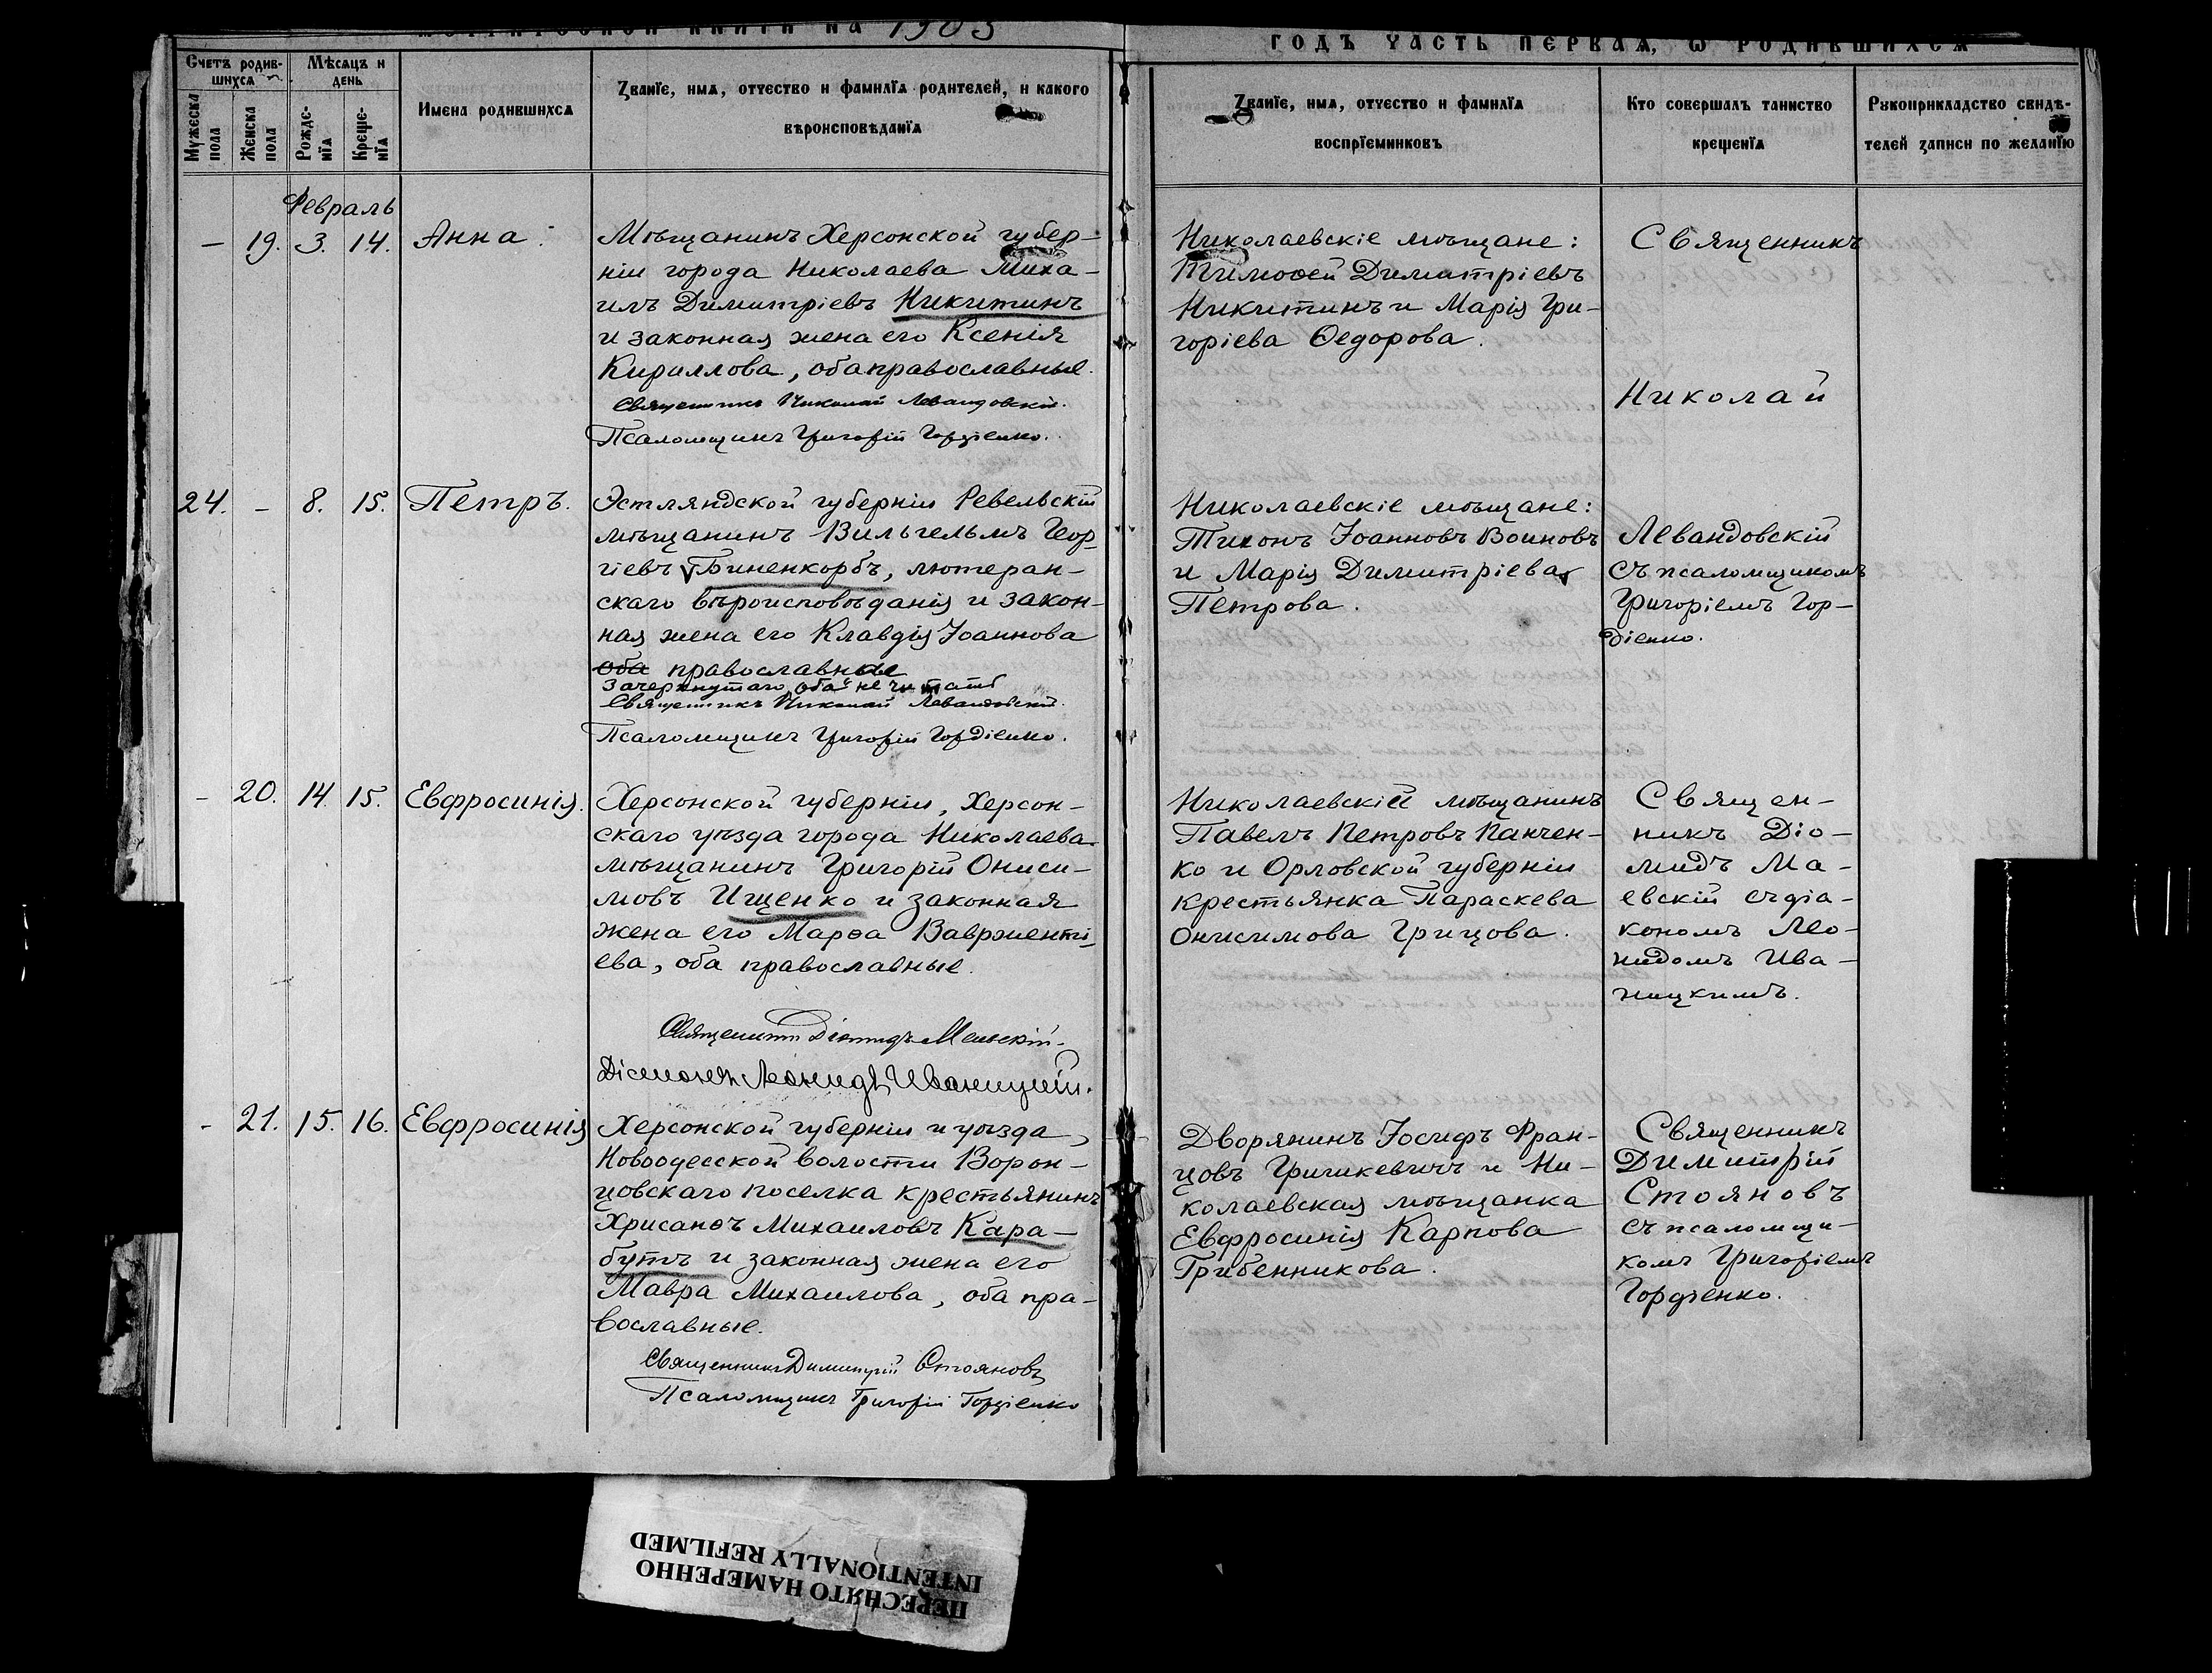 1903
годъ часть первая, ѡ родившихся
Счетъ родив-
шихся
Мѣсяцъ и
день
Мужеска
пола
Женска
пола
Рожде-
нія
Креще-
нія
Имена родившихся
Званїе, имя, отчество и фамилїя родителей, и какого
вѣроисповѣданїя
Званїе, имя, отчество и фамилїя
воспрїемниковъ
Кто совершалъ таинство
крещенїя
Рукоприкладство свидѣ-
телей записи по желанїю
Февраль
— 19. 3. 14. Анна.
Мѣщанинъ Херсонской губер-
ніи города Николаева Миха-
илъ Димитріевъ Никитинъ
и законная жена его Ксенія
Кириллова, оба православные.
Священникъ Николай Левандовскій.
Псаломщикъ Григорій Гордіенко.
Николаевскіе мѣщане:
Тимоѳей Димитріевъ
Никитинъ и Марія Гри-
горіева Ѳедорова.
Священникъ
Николай
24. – 8. 15. Петръ.
Эстляндской губерніи Ревельскій
мѣщанинъ Вильгельмъ Геор-
гіевъ Биненкорбъ, лютеран-
скаго вѣроисповѣданія и закон-
ная жена его Клавдія Іоаннова
оба православные
Зачеркнутаго „оба" не читать
Священникъ Николай Левандовскій.
Псаломщикъ Григорій Гордіенко.
Николаевскіе мѣщане:
Тихонъ Іоанновъ Воиновъ
и Марія Димитріева
Петрова.
Левандовскій
съ псаломщикомъ
Григоріемъ Гор-
діенко.
– 20. 14. 15. Евфросинія.
Херсонской губерніи, Херсон-
скаго уѣзда города Николаева
мѣщанинъ Григорій Ониси-
мовъ Ищенко и законная
жена его Марѳа Вавржентi-
ева, оба православные.
Священникъ Діомидъ Маевскій.
Діаконъ Леонидъ Иваницкій.
Николаевскій мѣщанинъ
Павелъ Петровъ Панчен-
ко и Орловской губерніи
крестьянка Параскева
Онисимова Грицова.
Священ-
никъ Діо-
мидъ Ма-
евскій съ діа-
кономъ Лео-
нидомъ Ива-
ницкимъ.
- 21. 15. 16. Евфросинія
Херсонской губерніи и уѣзда,
Новоодесской волости Ворон-
цовскаго поселка крестьянинъ
Хрисанѳъ Михаиловъ Кара-
бутъ и законная жена его
Мавра Михаилова, оба пра-
вославные.
Священникъ Димитрій Стояновъ
Псаломщикъ Григорій Гордіенко
Дворянинъ Іосифъ Фран-
цовъ Гришкевичъ и Ни-
колаевская мѣщанка
Евфросинія Карпова
Гребенникова.
Священникъ
Димитрій
Стояновъ
съ псаломщи-
комъ Григоріемъ
Гордіенко.
ПЕРЕСНЯТО НАМЕРЕННО
INTENTIONALLY REFILMED